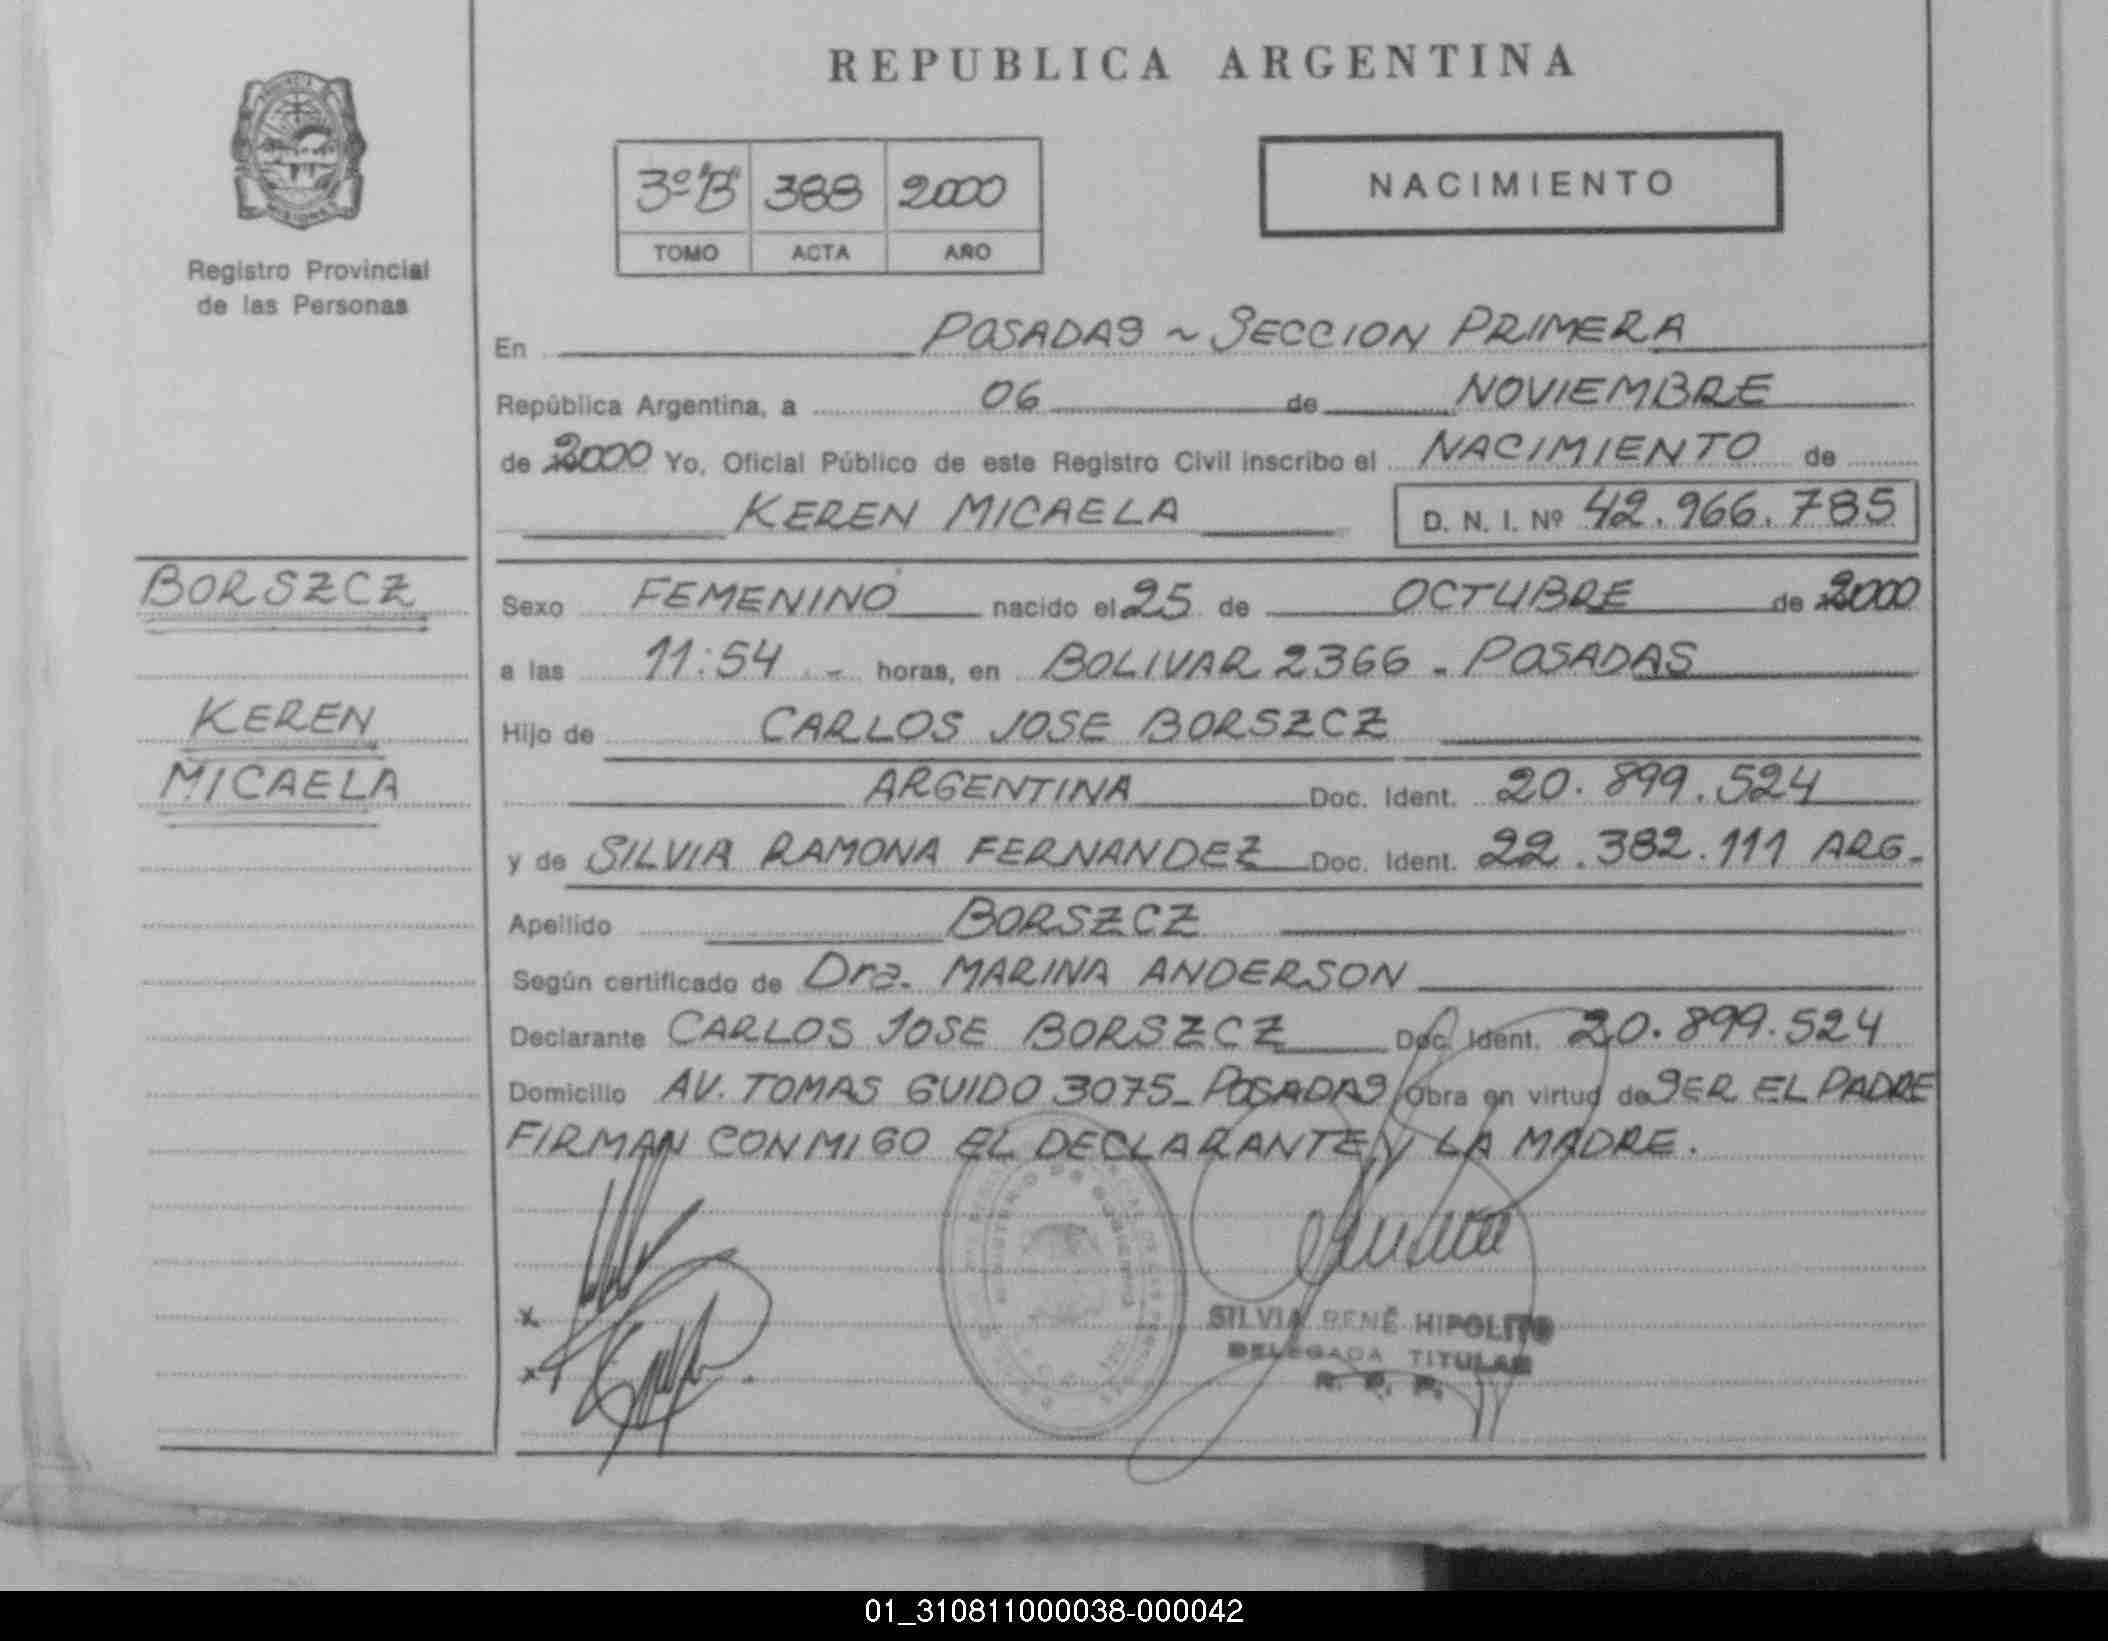 REPUBLICA ARGENTINA
3º "B" 388 2000
TOMO ACTA AÑO
NACIMIENTO
Registro Provincial
de las Personas
BORSZCZ
KEREN
MICAELA
En POSADAS ~ SECCION PRIMERA
República Argentina, a 06 de NOVIEMBRE
de 2000 Yo, Oficial Público de este Registro Civil inscribo el NACIMIENTO de
KEREN MICAELA D. N. I. Nº 42.966.785
Sexo FEMENINO nacido el 25 de OCTUBRE de 2000
a las 11:54 - horas, en BOLIVAR 2366 - POSADAS
Hijo de CARLOS JOSE BORSZCZ
ARGENTINA Doc. Ident. 20.899.524
y de SILVIA RAMONA FERNANDEZ Doc. Ident. 22.382.111 ARG.
Apellido BORSZCZ
Según certificado de Dra. MARINA ANDERSON
Declarante CARLOS JOSE BORSZCZ Doc. Ident. 20.899.524
Domicilio AV. TOMAS GUIDO 3075_ POSADAS Obra en virtud de SER EL PADRE
FIRMAN CONMIGO EL DECLARANTE Y LA MADRE.
x
x
SILVIA RENÉ HIPOLITO
DELEGADA TITULAR
R. P. P.
01_310811000038-000042